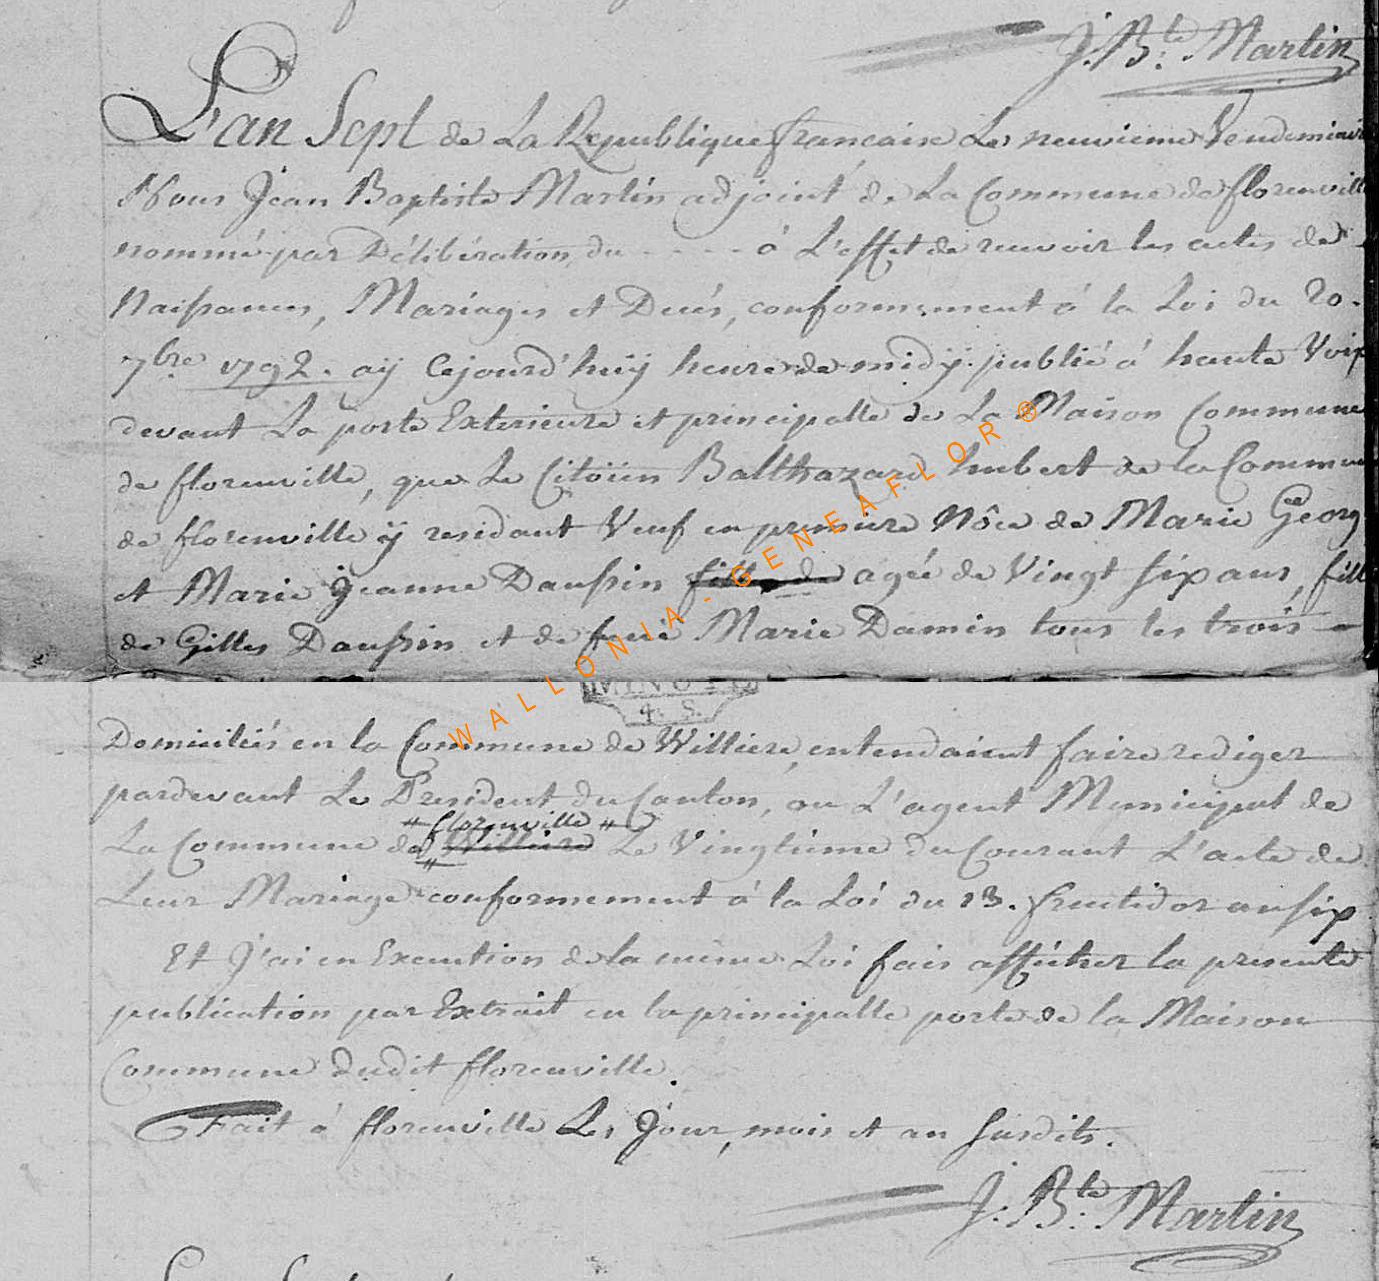 J. B.te Martin
L'an Sept de La Republique francaise Le neuvieme Vendemiaire
Nous Jean Baptiste Martin adjoint de La Commune de florenville
nommé par Délibération du - - - - à L'effet de recevoir les actes de
Naissances, Mariages et Decés, conformement à la Loi du 20.
7bre 1792. aÿ Cejourd'huÿ heure de midÿ publié à haute Voix
devant La porte Exterieure et principalle de La Maison Commune
de florenville, que Le Citoïen Balthazard hubert de la Commune
de florenville ÿ residant Veuf en premiere Nôce de Marie Georg
et Marie Jeanne Daussin fille de agée de Vingt six ans, fille
de Gilles Daussin et de feuë Marie Damin tous les trois
WALLONIA - GENEAFLOR ®
4. S.
Domiciliés en la Commune de Williere, entendaient faire rediger
pardevant Le President du Canton, ou L'agent Municipal de
" florenville "
La Commune de Williere Le Vingtième du Courant L'acte de
Leur Mariage conformement à la Loi du 13. fructidor an six
Et J'ai en Execution de la même Loi fais afficher la presente
publication par Extrait en la principalle porte de la Maison
Commune dudit florenville.
Fait à florenville Les Jour, mois et an susdits.
J. B.te Martin